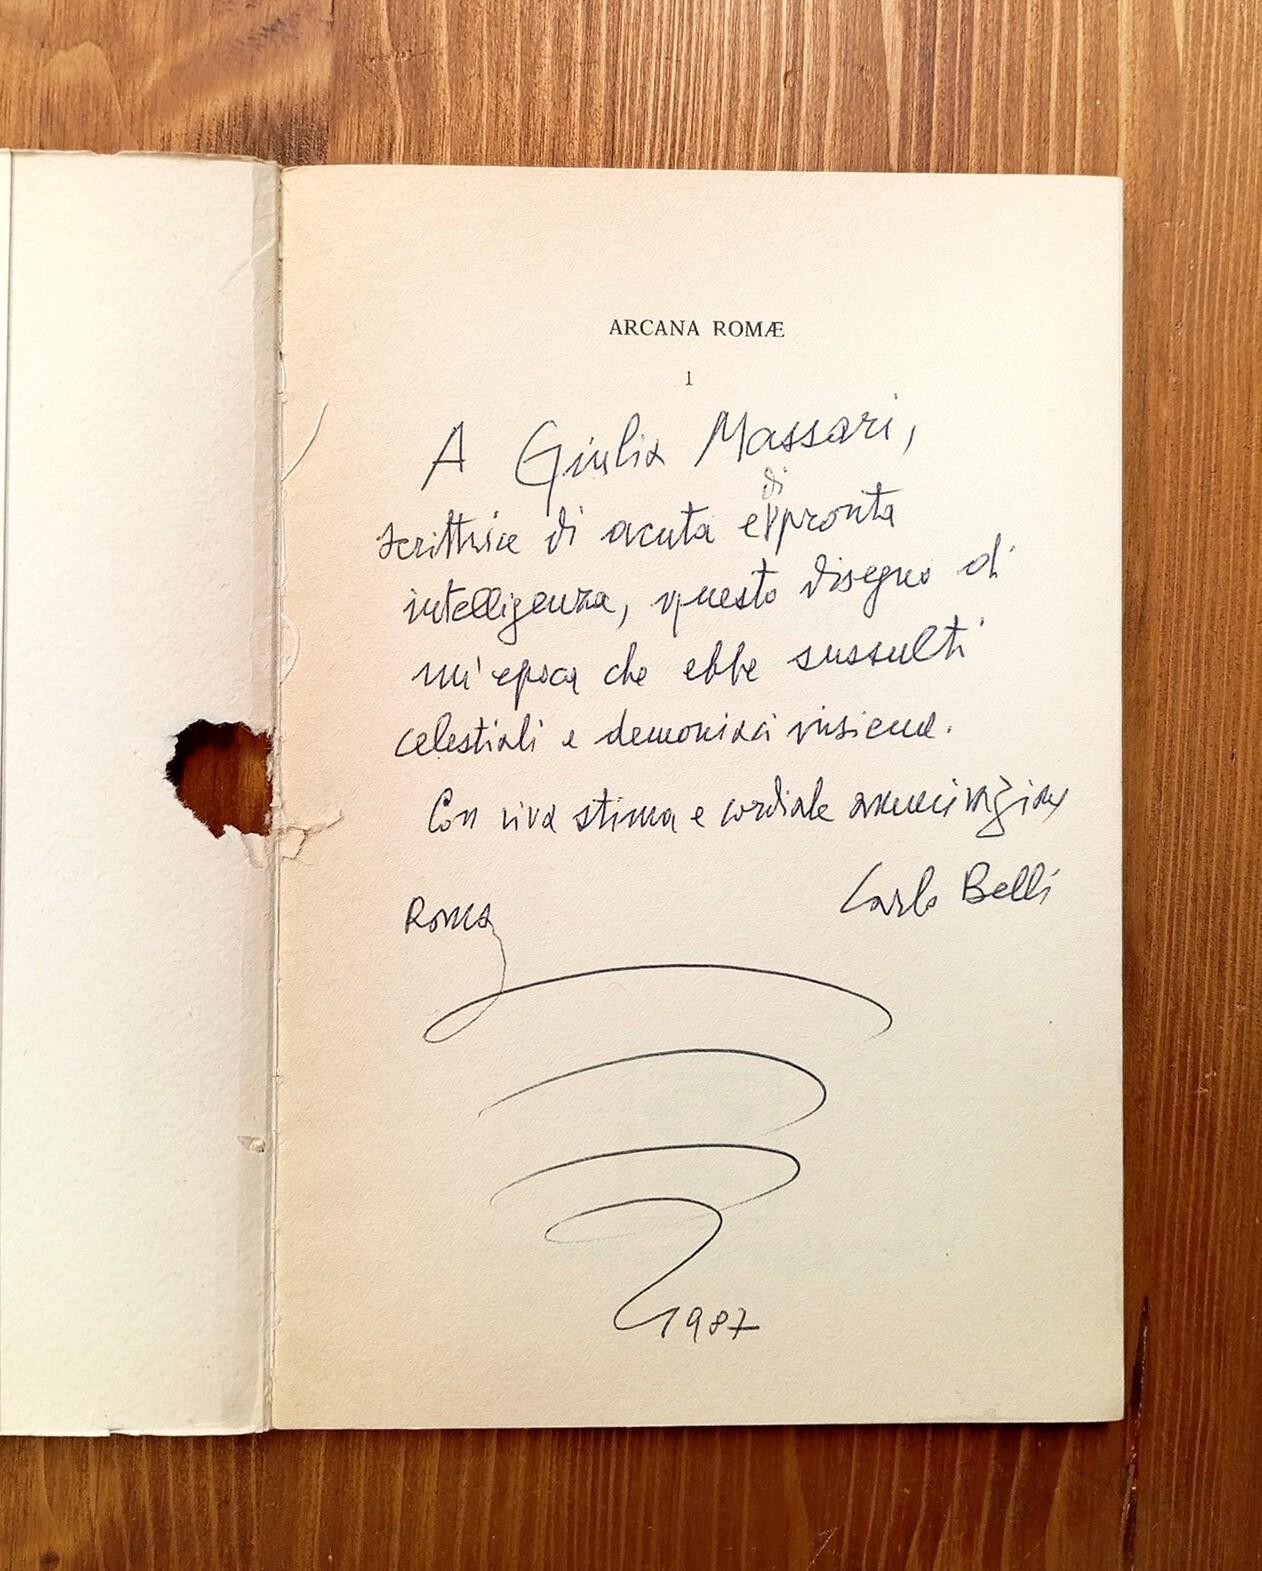 ARCANA ROMÆ
1
A Giulia Massari,
scrittrice di acuta e di pronta
intelligenza, questo disegno di
un'epoca che ebbe sussulti
celestiali e demoniaci insieme.
Con viva stima e cordiale ammirazione
Carlo Belli
Roma
1987